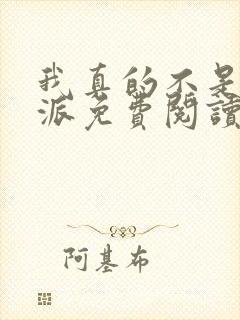 我真的不是
派免費閱讀
阿基布